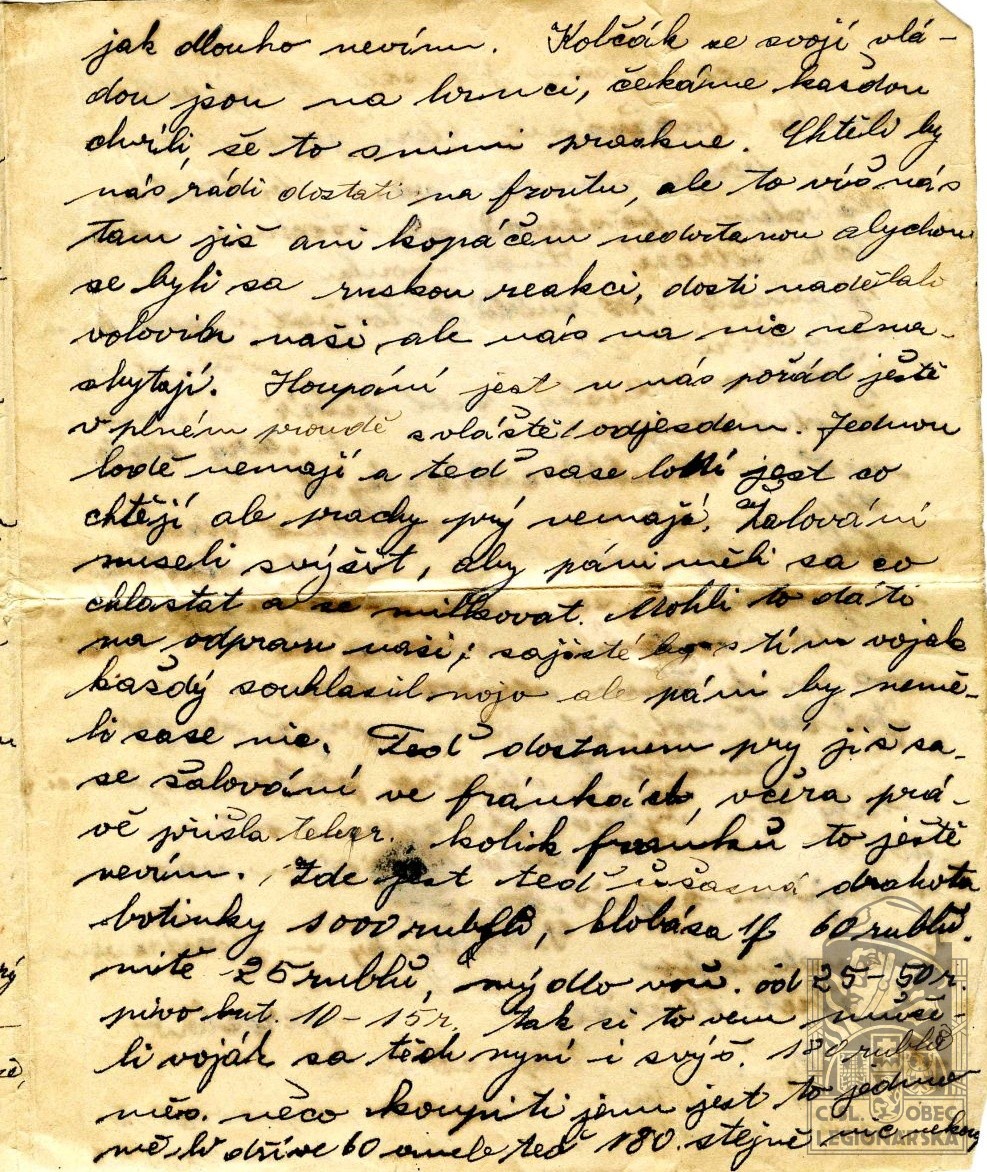 jak dlouho nevím. Kolčák se svojí vlá-
dou jsou na hrnci, čekáme každou
chvíli, že to s nimi praskne. Chtěli by
nás rádi dostati na frontu, ale to víš nás
tam již ani kopáčem nedostanou abychom
se byli za ruskou reakci, dosti nadělali
volovin naši ale nás na nic nena-
chytají. Houpání jest u nás pořád ještě
v plném proudě zvláště odjezdem. Jednou
lodě nemají a teď zase lodí jest co
chtějí ale prachy prý nemají. Žalování
museli zvýšit, aby páni měli za co
chlastat a se milkovat. Mohli to dáti
na odpravu naši; zajisté by s tím voják
každý souhlasil nojo ale páni by nemě-
li zase nic. Teď dostanem prý již za-
se žalování ve fránkách, včéra prá-
vě přišla telegr. kolik fránků to ještě
nevím. Zde jest teď úžasná drahota
botinky 1000 rublů, klobása 1f 60 rublů.
nitě 25 rublů, mýdlo voň. od 25-50 r.
pivo but. 10-15 r. tak si to vem
li voják za těch nyní i zvýš. 180 rublů
měs. něco koupiti jemu jest to jedno
dříve 60 teď 180. stejně nic
ČSL. OBEC
LEGIONÁŘSKÁ